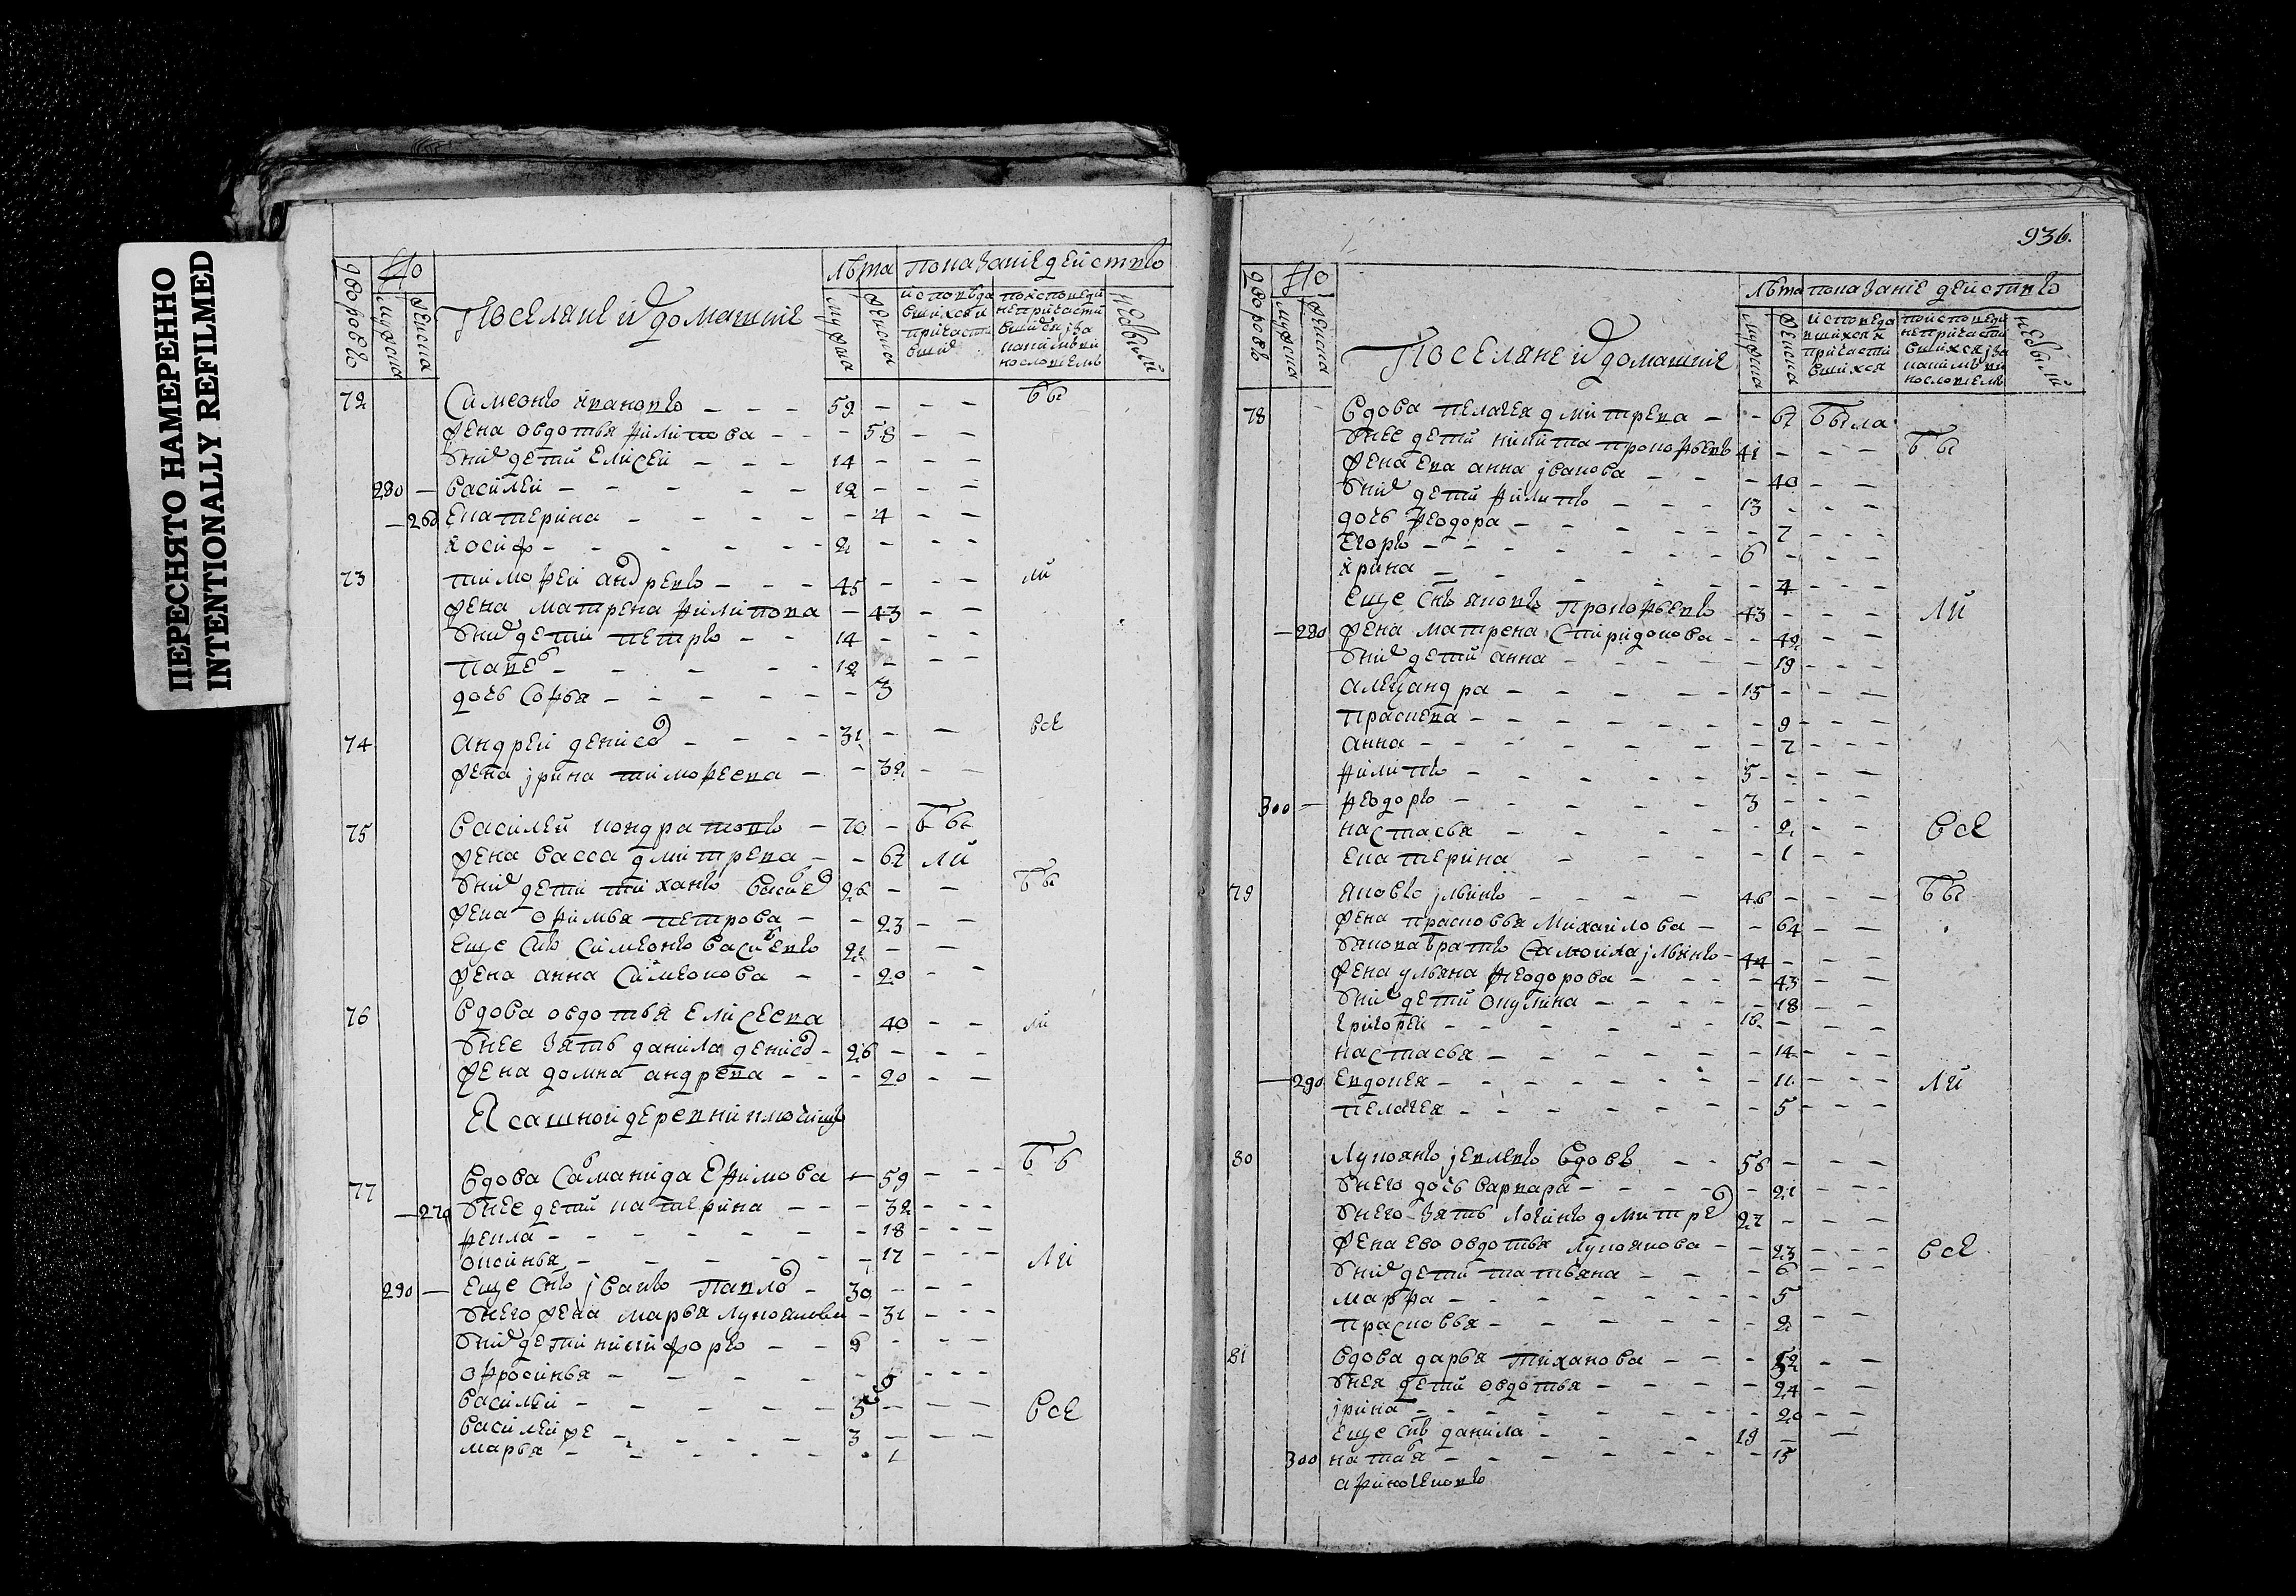 ПЕРЕСНЯТО НАМЕРЕННО
INTENTIONALLY REFILMED
но лѣта показанiе действъ
дворовъ мужска женска Поселяне и домашнiе мужска женска исповѣдавшихся и причастившихся
72 Симеонъ ивановъ - - - 52 - - - бы
жена овдотья филипова - - - 58 - -
у них дети елисеи - - - 14 - - -
280 - василеи - - - - - 12 - - -
- 260 екатерина - - - - - 4 - -
иосиф - - - - - - 2 - - -
73 тимофеи андреевъ - - - 45 - - - ли
жена матрена филипова - 43 - -
у них дети петръ - - 14 - - -
- - - - - 12 - - -
дочь софья - - - - - - 3
74 андреи денисо - - - - 31 - - все
жена iрина тимофеева - - 32 - -
75 василеи кондратовъ - 70 - бы
жена васса дмитрева - - 67 ли
у них дети тиханъ васиlе 26 - - бы
жена офимья петрова - - 23 - -
еще снъ симеонъ василевъ 21 - -
жена анна симеонова - - 20 - -
76 вдова овдотья елисеева 40 - - ли
у нее зять данила денисо - 26 - - -
жена домна андрева - - - 20 - -
сашной деревни
77 вдова саманида ефимова - 59 - - - бы
- 270 у нее дети катерина - - - 32 - - -
фекла - - - - - - - 18 - - -
оксинья - - - - - - 17 - - - ли
290 - еще снъ iванъ павло - 30 - - -
у него жена марья лукоянова - 31 - - -
у них дети никифоръ - - 9 - - -
офросинья - - - - - - - -
василеи - - - - - 5 - - - все
василеи же - - - - 3 - - -
марья - - - - - - 1
936.
но лѣта показанiе действъ
дворовъ мужска женска Поселяне и домашнiе мужска женска
78 вдова пелагея дмитрева - - 67 была
у нее дети никита прокофьевъ 41 - - - бы
жена ева анна iванова - - - 40 - -
у них дети филипъ - - - 13 - - -
дочь феодора - - - - 7 - - -
егоръ - - - - - - 6 - - -
ирина - - - - - - 4 - - -
еще снъ яковъ прокофьевъ 43 - - - ли
- 280 жена матрена спиридонова - - 42 - -
у них дети анна - - - - - 19 - - -
александра - - - - - 15 - - -
праскева - - - - - - 9 - - -
анна - - - - - - - 7 - - -
филипъ - - - - - 5 - - - -
300 - феодоръ - - - - - 3 - - -
настасья - - - - - 2 - - все
екатерина - - - - - 1 - -
79 яковъ iльинъ - - - - 46 - - - бы
жена прасковья михаилова - - 64 - -
якова братъ самоила iльинъ - 44 - - -
жена ульяна феодорова - - - - 43 - -
у них дети окулина - - - - - 18 - -
григореи - - - - - - 16 - - -
настасья - - - - - - 14 - - -
- 290 евдокея - - - - - - - 11 - - - ли
пелагея - - - - - - - 5 - - -
80 лукоянъ iевлевъ вдовъ - - 56 - - -
у него дочь варвара - - - - - 21 - - -
у него зять логинъ дмитре 27 - - -
жена ево овдотья лукоянова - - 23 - - - все
у них дети татьяна - - - 6 - - -
марфа - - - - - - - 5
прасковья - - - - - - 2 -
81 вдова дарья тиханова - - - 52 - -
у нея дети овдотья - - - - 24 - -
iрина - - - - - - - 20 - -
еще снъ данила - - - - 19 - -
300 натая - - - - - - - 15